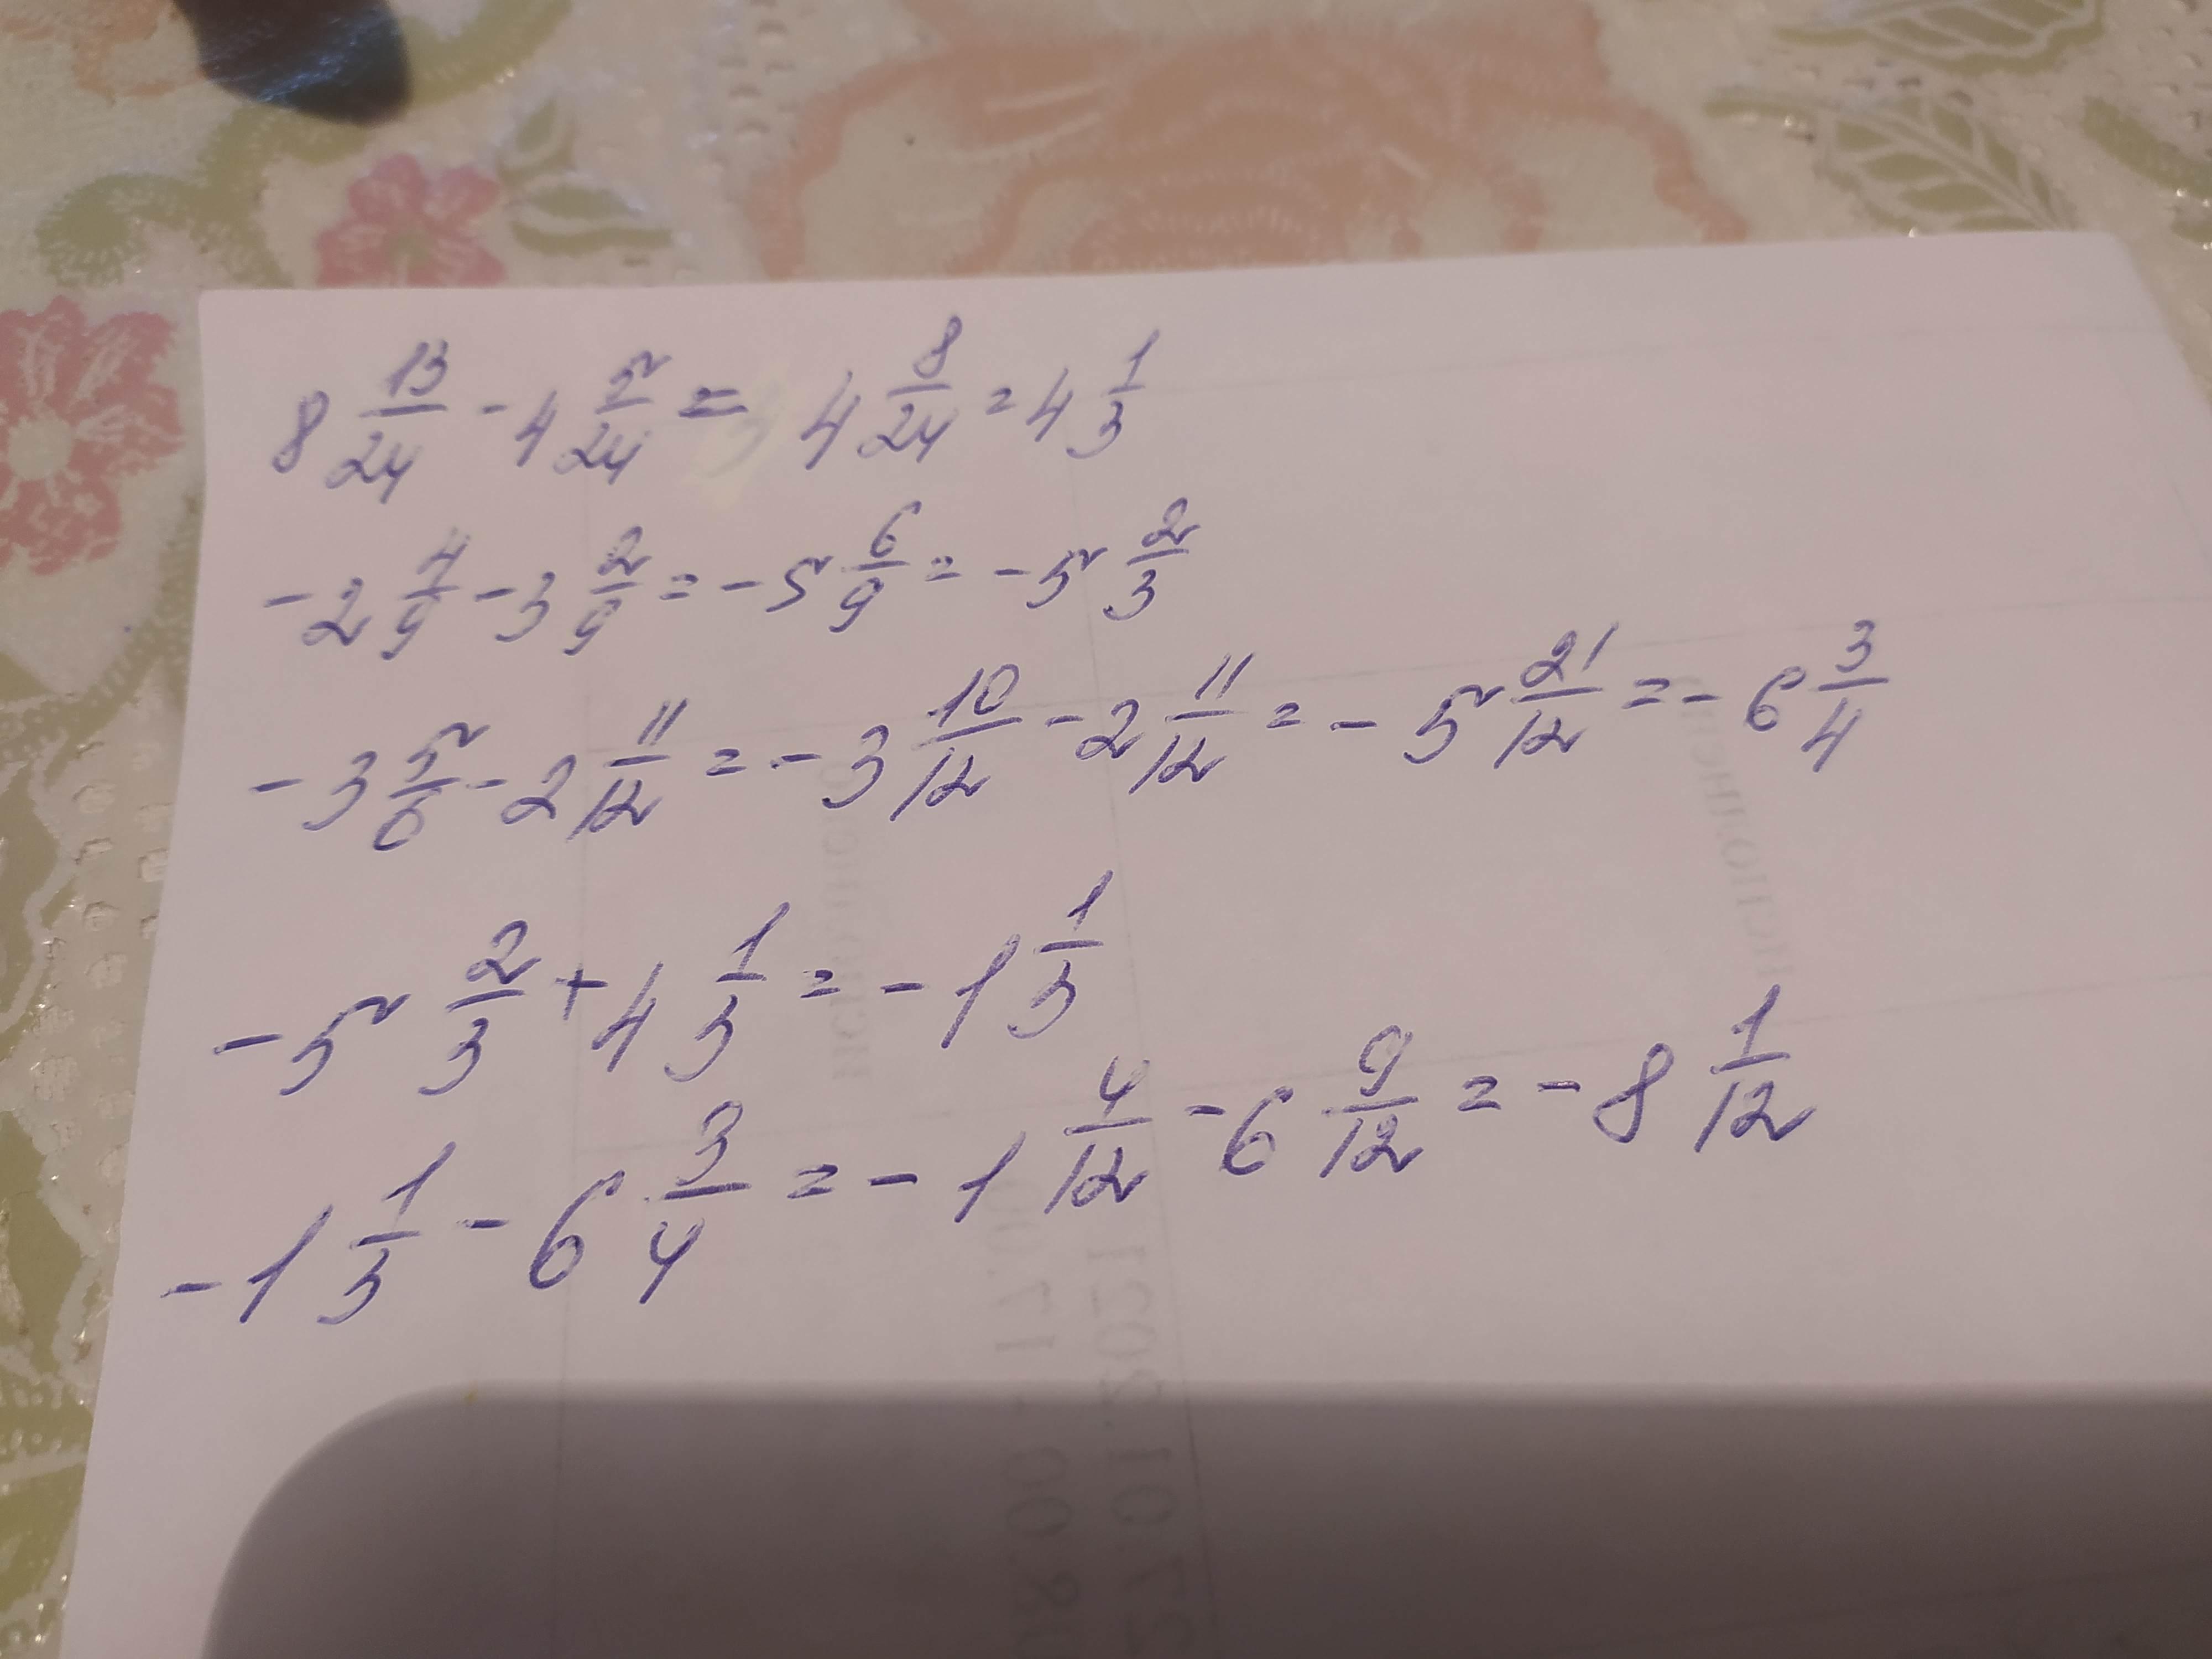 8 13/24 - 4 5/24 = 4 8/24 = 4 1/3
- 2 4/9 - 3 2/9 = - 5 6/9 = - 5 2/3
- 3 5/6 - 2 11/12 = - 3 10/12 - 2 11/12 = - 5 21/12 = - 6 3/4
- 5 2/3 + 4 1/3 = - 1 1/3
- 1 1/3 - 6 3/4 = - 1 4/12 - 6 9/12 = - 8 1/12